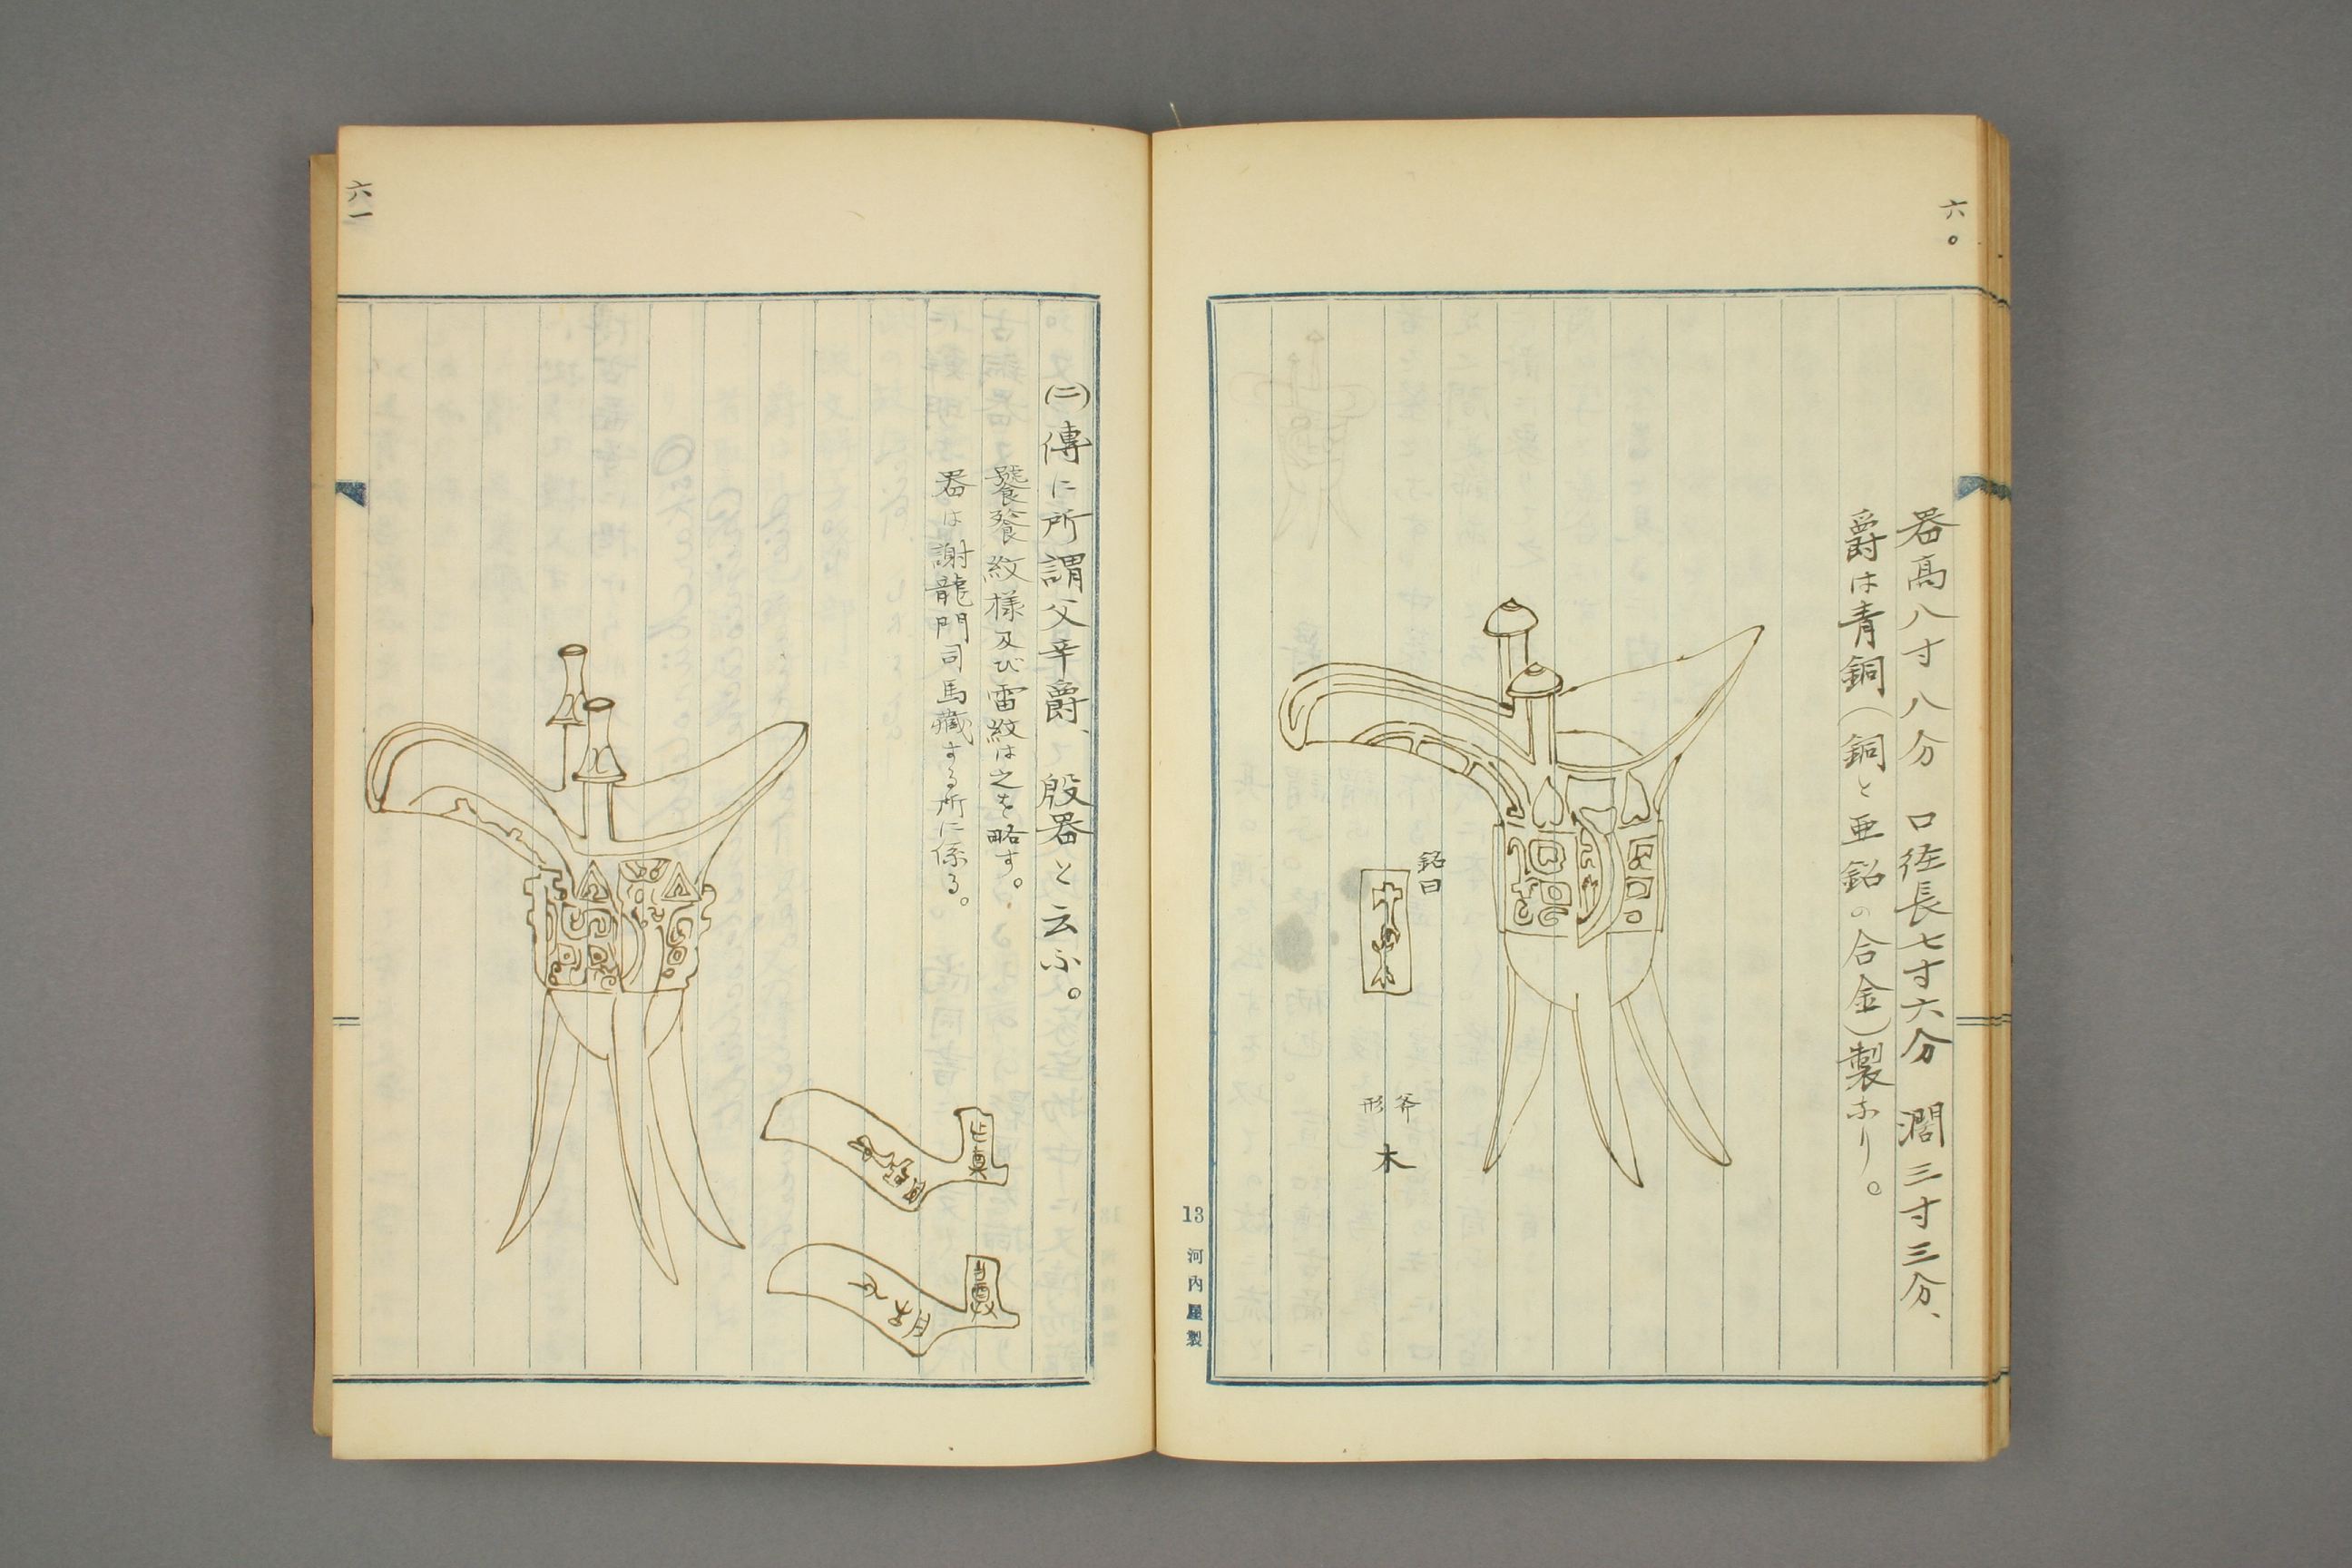 六〇
器高八寸八分　口径長七寸六分　濶三寸三分、
爵は青銅(銅と亜鉛の合金)製なり。
銘曰
斧
形
木
13 河内屋製
(二)傳に所謂父辛爵、殷器と云ふ。
饕餮紋様及び雷紋は之を略す。
器は謝龍門司馬藏する所に係る。
六一